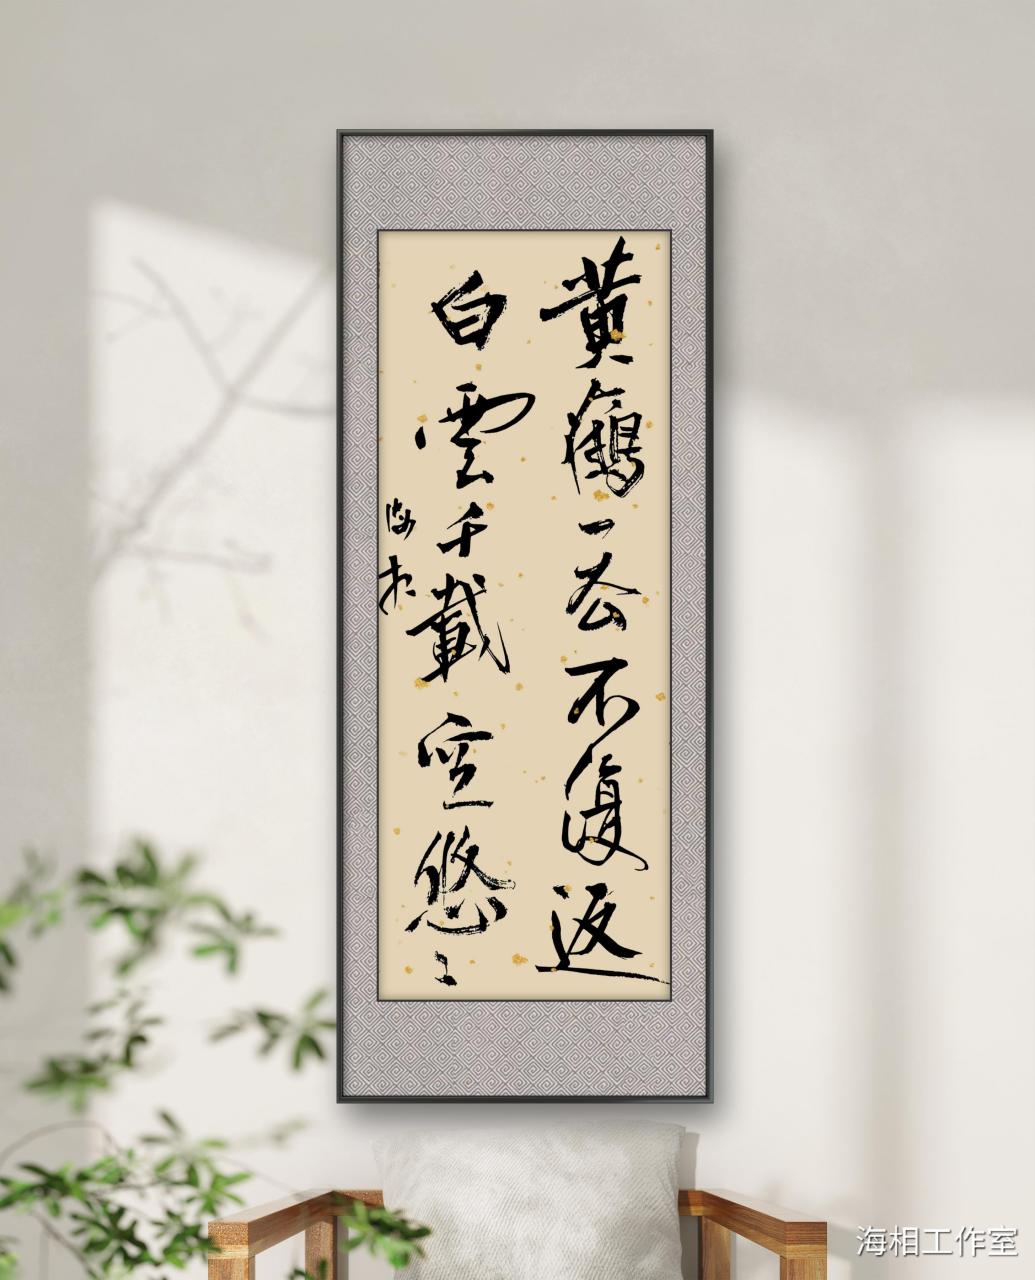 黄鶴一去不復返
白雲千載空悠〻
海相
海相工作室